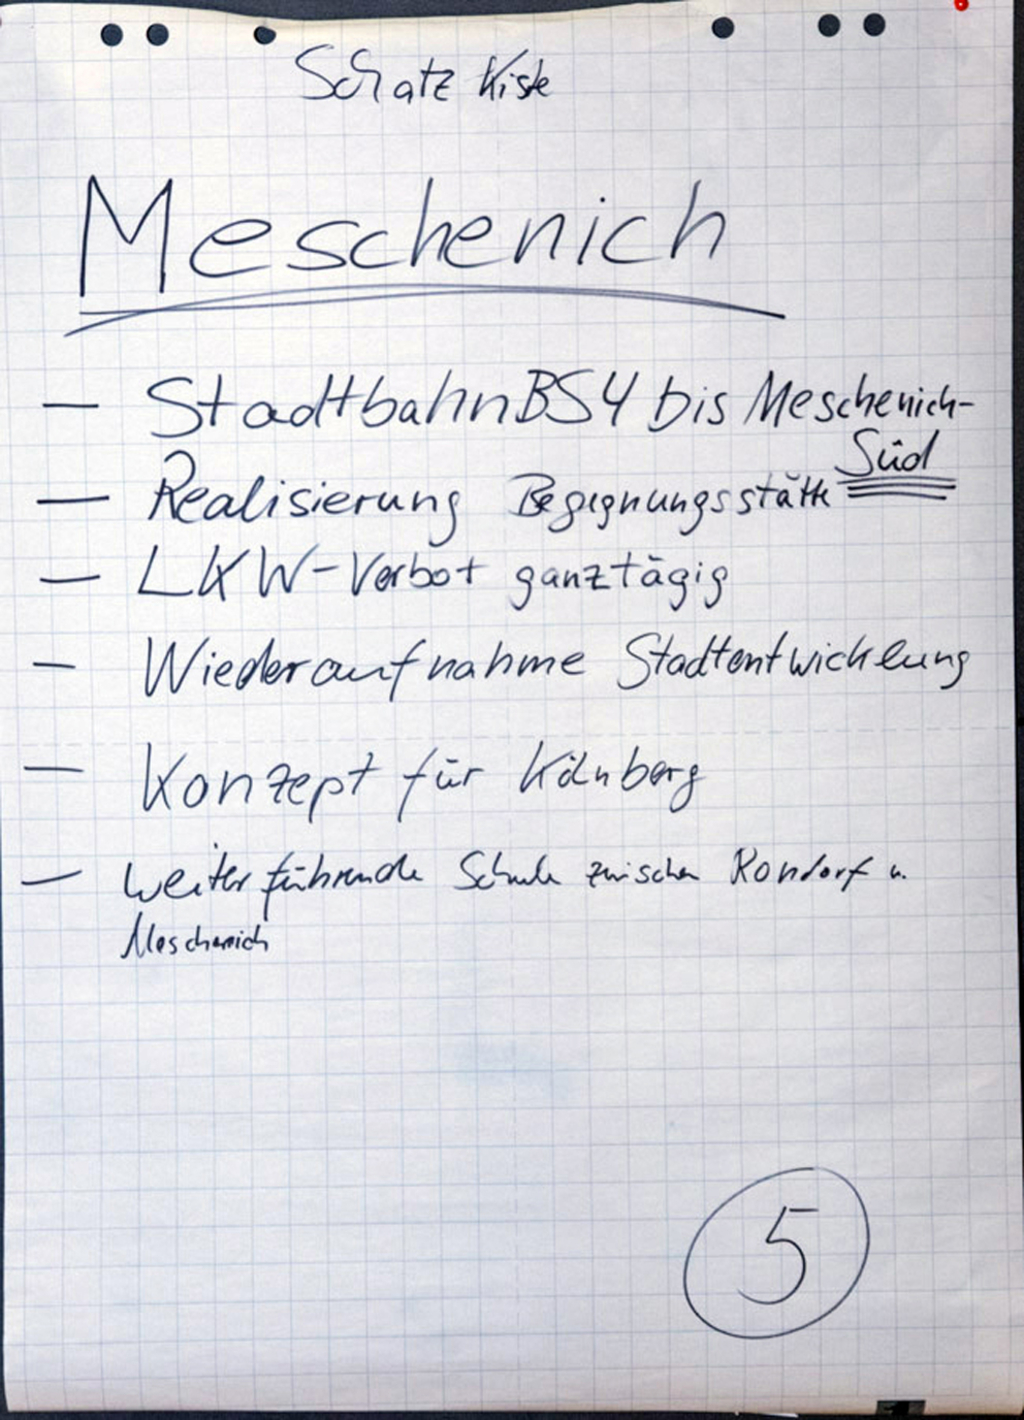 Schatz Kiste
Meschenich
— Stadtbahn BS4 bis Meschenich-
Süd
— Realisierung Begegnungsstätte
— LKW-Verbot ganztägig
— Wiederaufnahme Stadtentwicklung
— Konzept für Kölnberg
— weiterführende Schule zwischen Rondorf u.
Meschenich
5